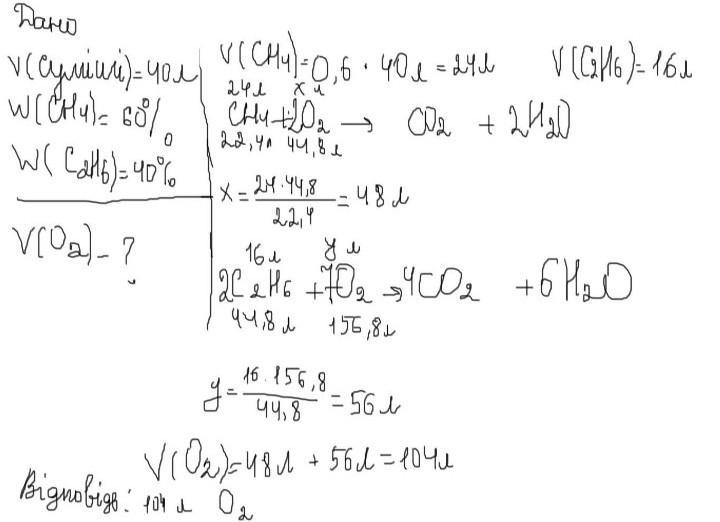 Дано
V(суміші)=40л
W(CH4)=60%
W(C2H6)=40%
V(O2)-?
V(CH4)=0,6·40л=24л V(C2H6)=16л
24л x л
CH4+2O2 → CO2 + 2H2O
22,4л 44,8л
x=24·44,8/22,4=48л
16л y л
2C2H6 +7O2 →4CO2 +6H2O
44,8л 156,8л
y=16·156,8/44,8=56л
V(O2)=48л + 56л=104л
Відповідь: 104 л O2